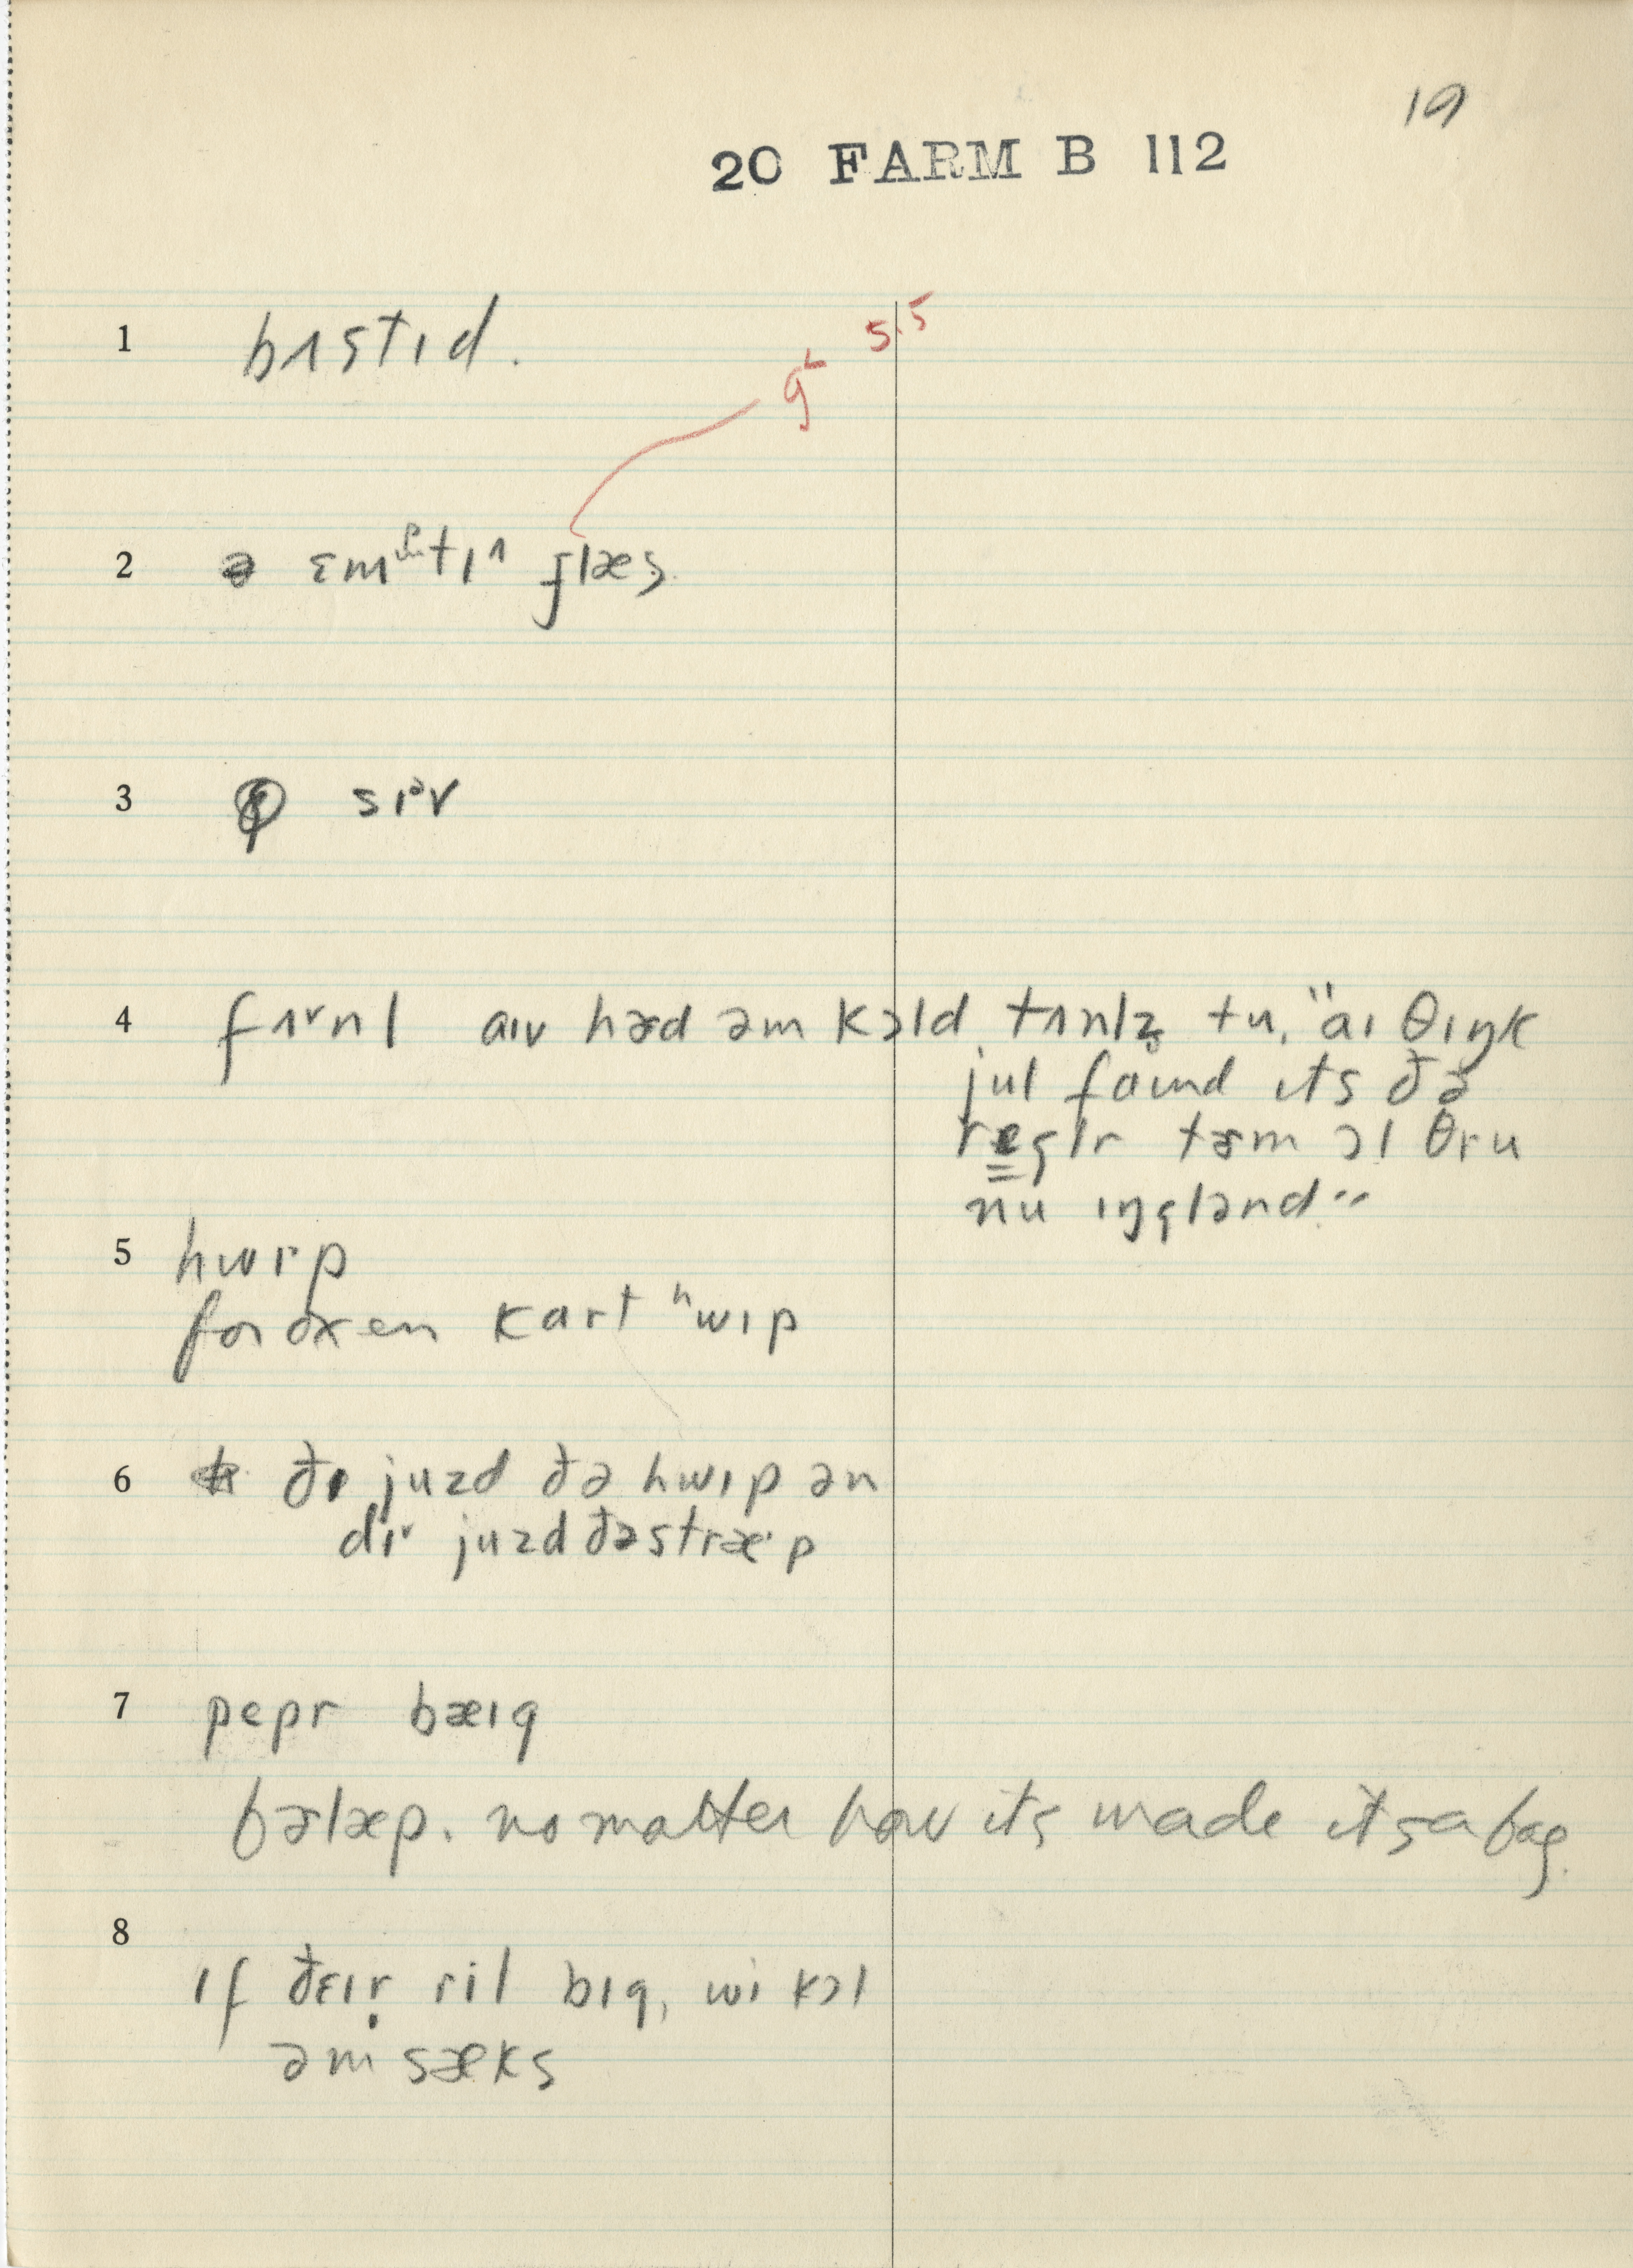 19
20 FARM B 112
5.5
1 bʌstɪd.
g˔
2 ə ɛmᵖtɪ^ glæs
3 sɪᵊv
4 fʌ˅nl aɪv hæd əm kɔld tʌnlz̥ tu, "aɪ θɪŋk
jul faɪnd ɪts ðə
reglr tɜm ɔl θru
nu ɪŋglənd."
5 hwɪp
for oxen kart ʰwɪp
6 ðɪ juzd ðə hwɪp ən
dɪ˅ juzd ðə stræˑp
7 pepr bæɪg
bɜlæp. no matter how its made its a bag.
8
ɪf ðɛɪr̥ ril bɪg, wi kɔl
əm sæks